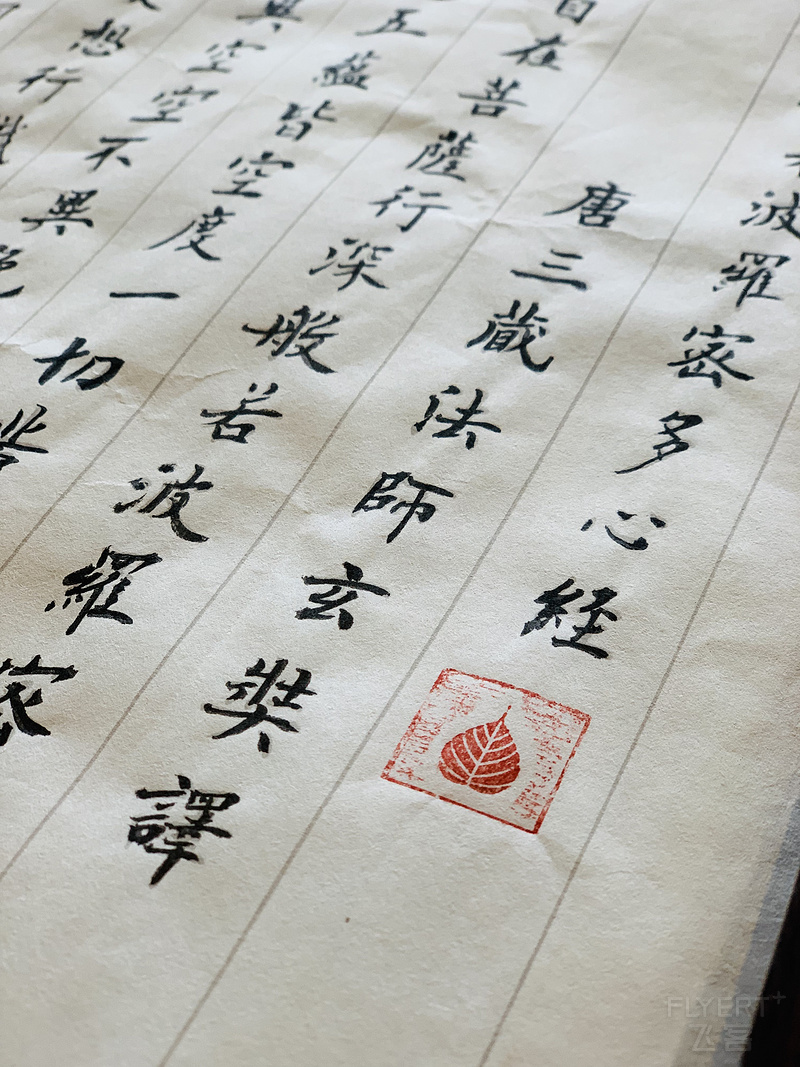 波羅密多心経
唐三蔵法師玄奘譯
自在菩薩行深般若波羅密
五蘊皆空度一切苦
異空空不異色
想行識
FLYERT+
飞客